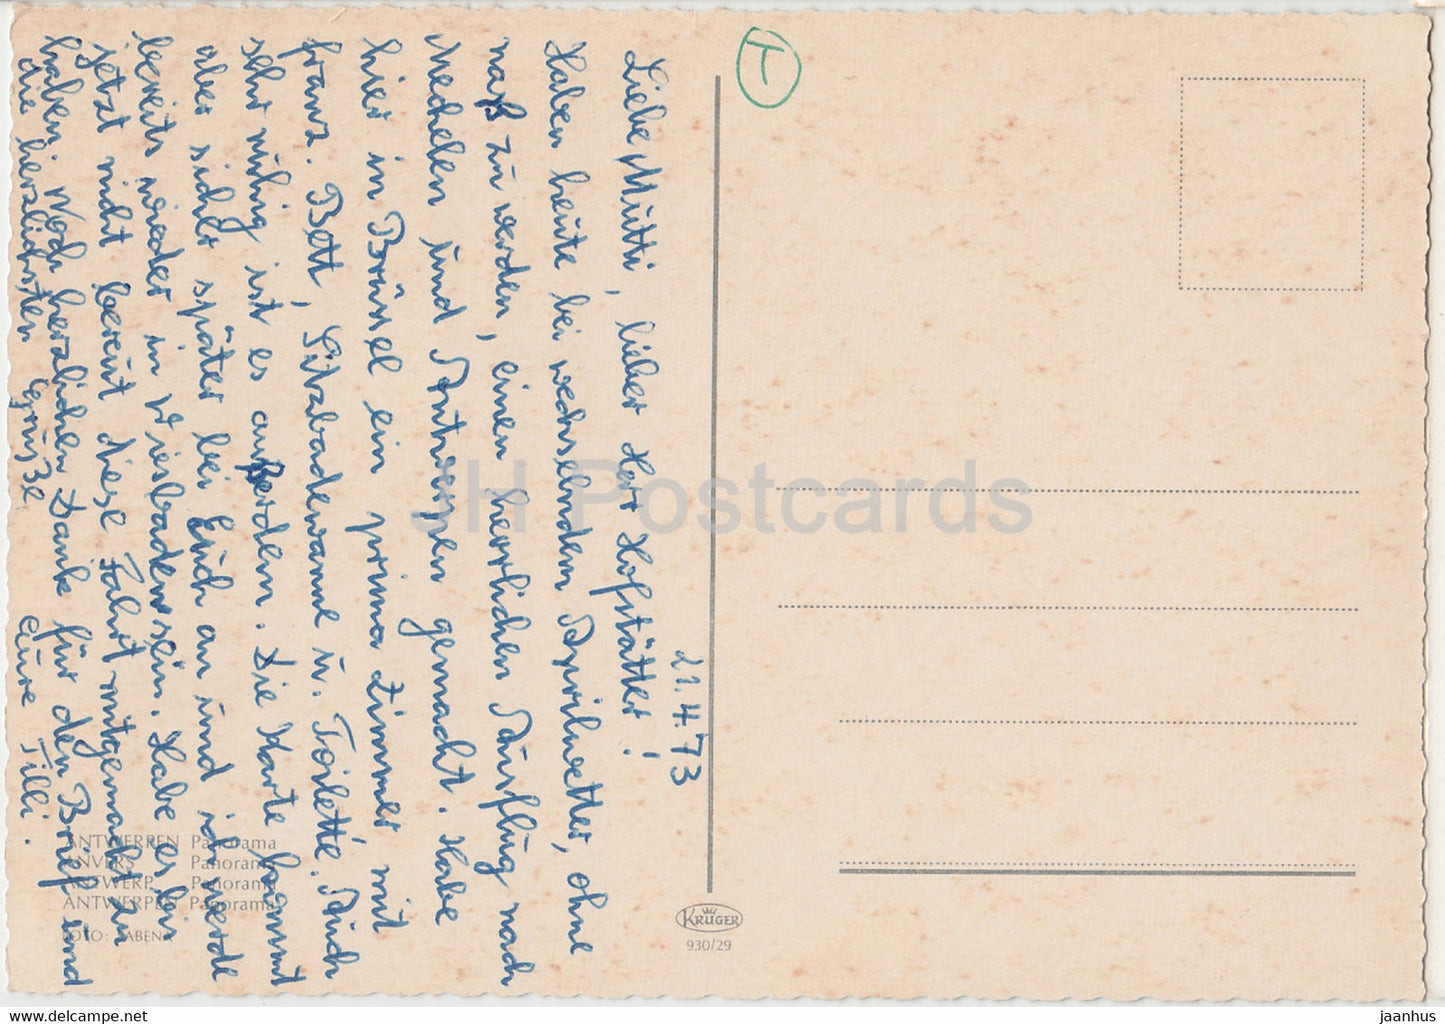 21.4.73
Liebe Mutti, lieber Herr Hofstätter!
Haben heute bei wechselndem Aprilwetter, ohne
naß zu werden, einen herrlichen Ausflug nach
Mecheln und Antwerpen gemacht. Habe
hier in Brüssel ein prima Zimmer mit
franz. Bett, Sitzbadewanne u. Toilette. Auch
sehr ruhig ist es außerdem. Die Karte kommt
aber sicher später bei Euch an und ich werde
bereits wieder in Wiesbaden sein. Habe es bis
jetzt nicht bereut diese Fahrt mitgemacht zu
haben. Noch herzlichen Dank für den Brief und
die herzlichsten Grüße eure Tilli.
ANTWERPEN Panorama
ANVERS Panorama
ANTWERP Panorama
ANTWERPEN Panorama
FOTO: SABENA
KRÜGER
930/29
JH Postcards
www.delcampe.net
jaanhus